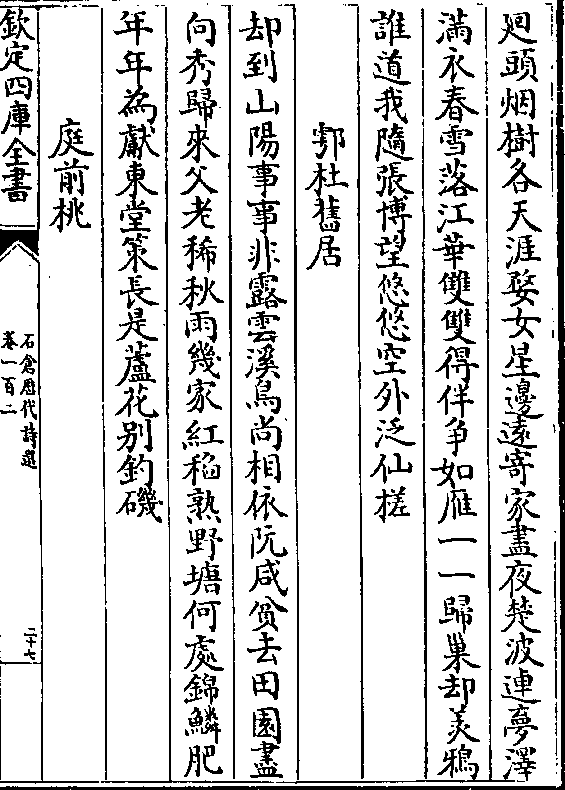 廻頭烟樹各天涯婺女星邊遠寄家盡夜楚波連夢澤
滿衣春雪落江華雙雙得伴争如雁一一歸巢却羡鴉
誰道我隨張博望悠悠空外泛仙槎
鄠杜舊居
却到山陽事事非露雲溪鳥尚相依阮咸貧去田園盡
向秀歸來父老稀秋雨幾家紅稻熟野塘何處錦鱗肥
年年為獻東堂策長是蘆花别釣磯
庭前桃
欽定四庫全書
石倉歷代詩選
卷一百二
二十七